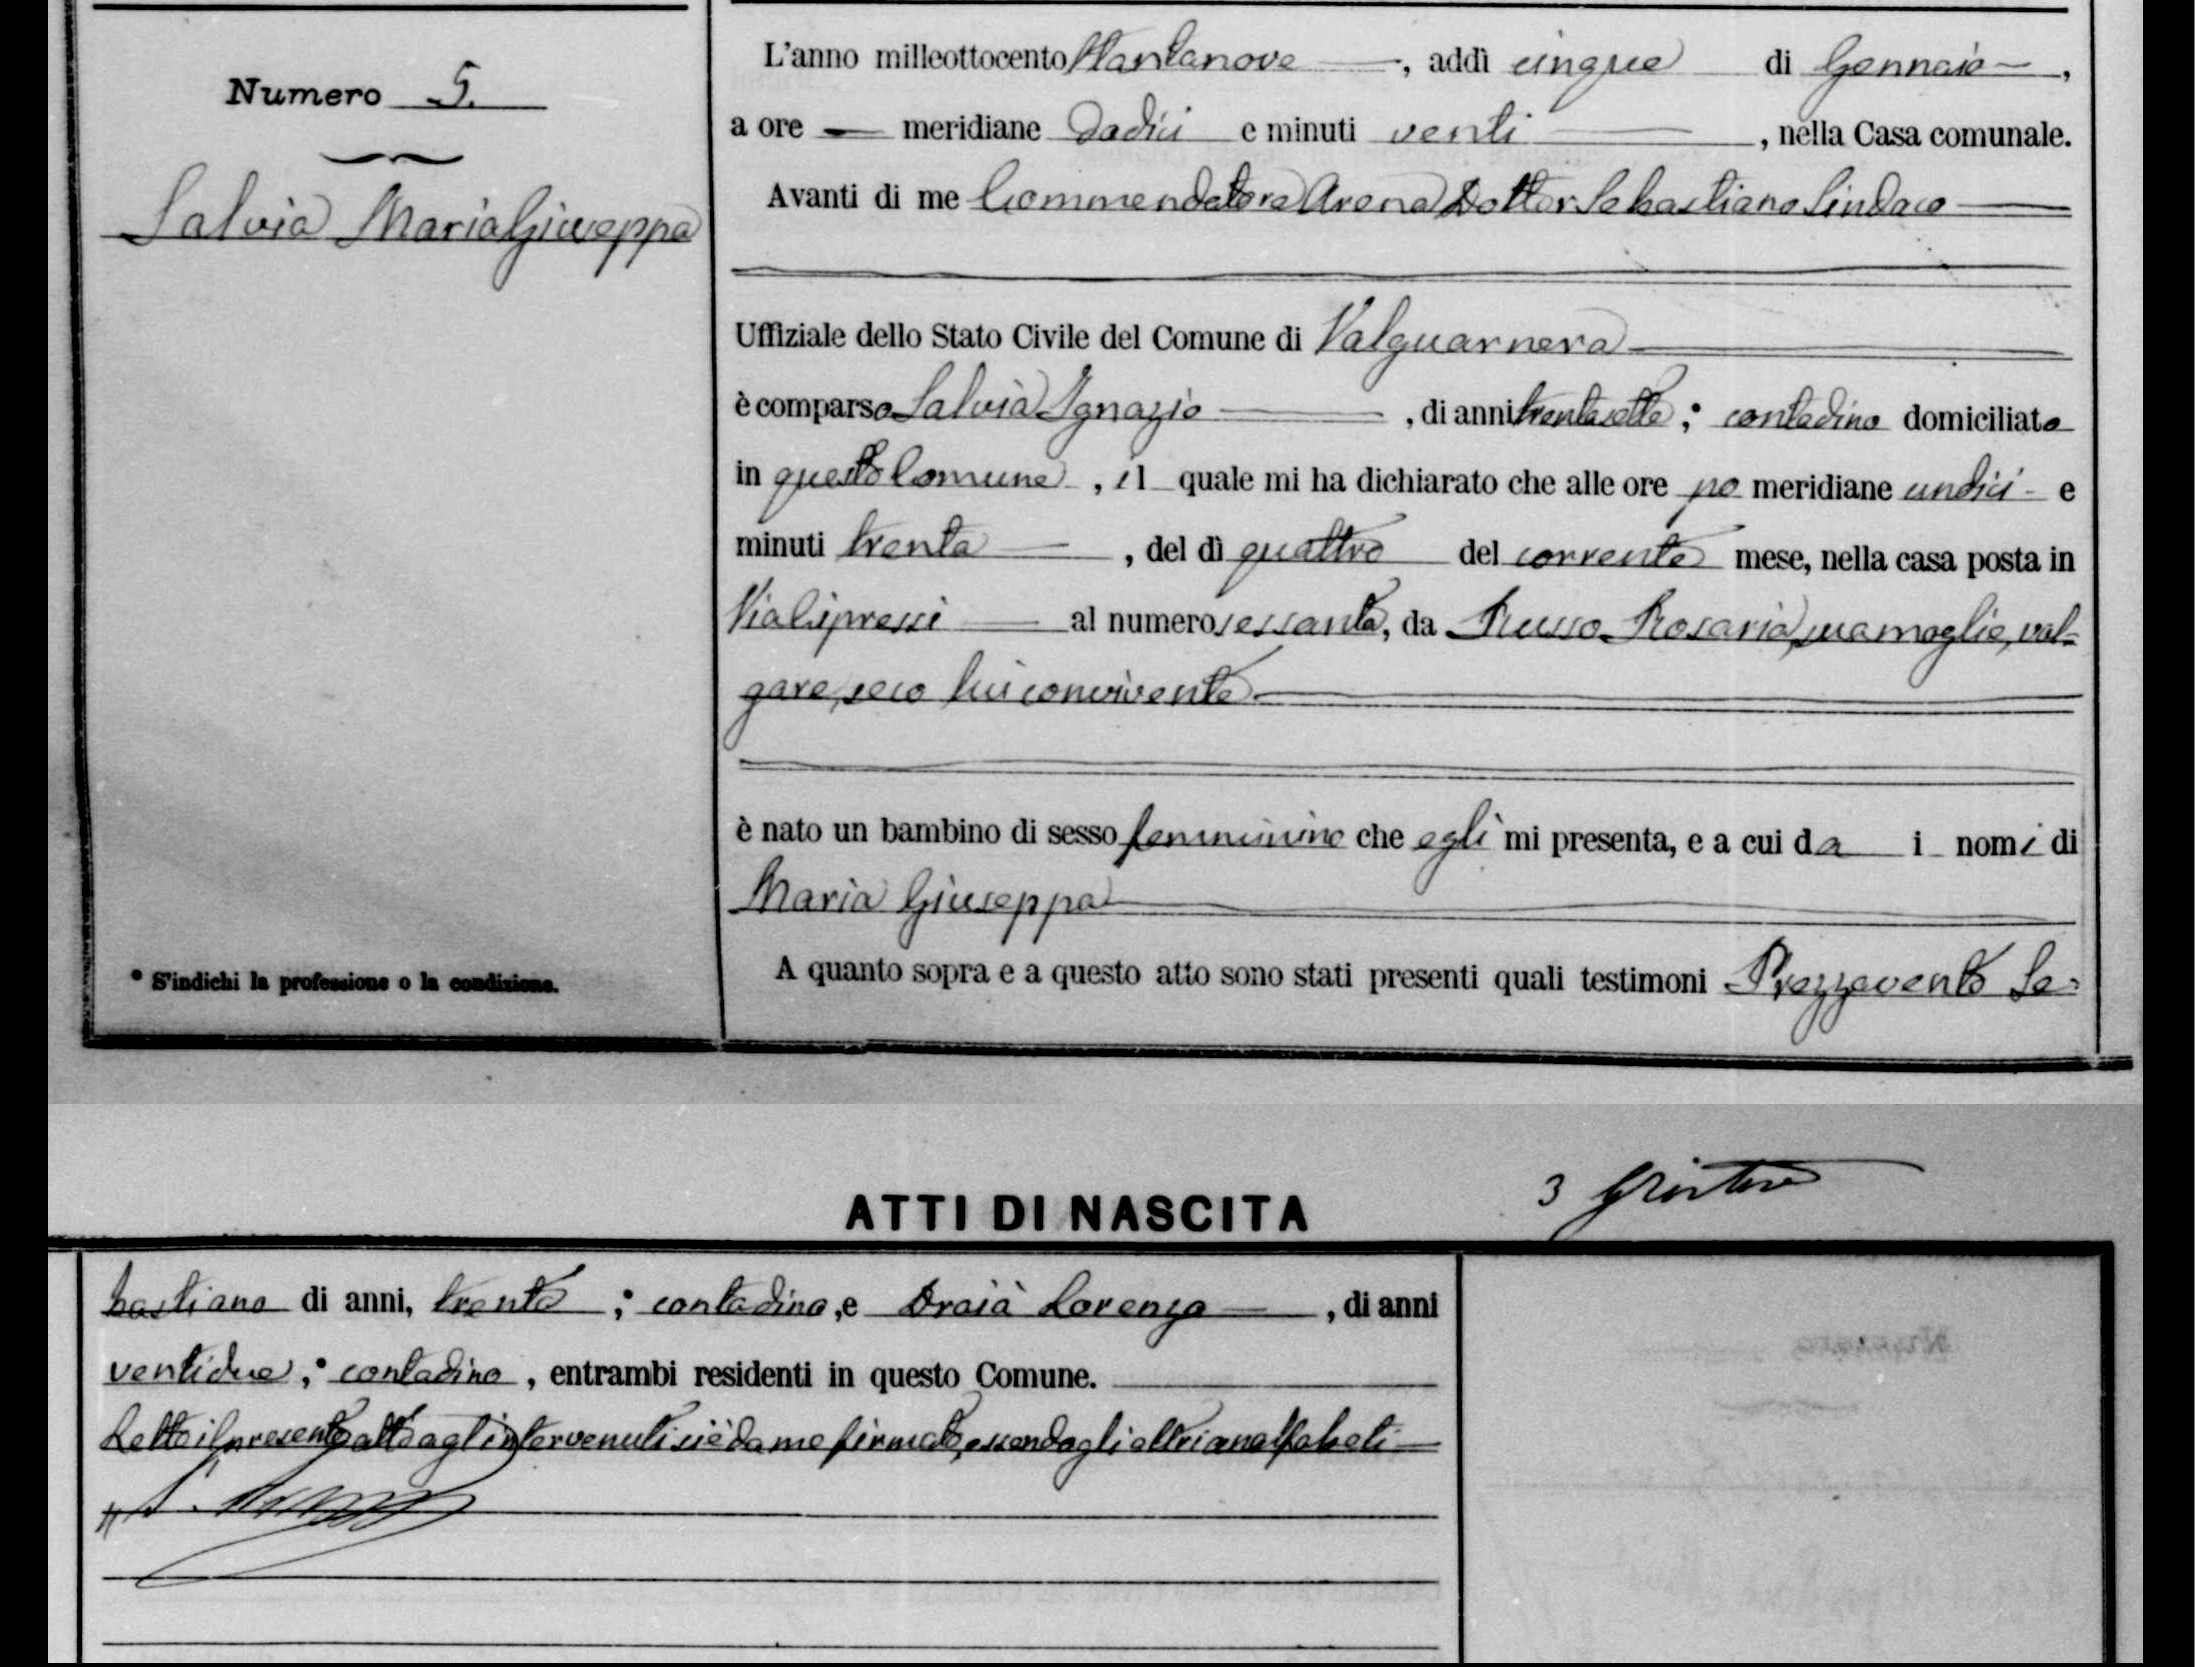 Numero 5.
Salvia Maria Giuseppa
* S'indichi la professione o la condizione.
L'anno milleottocento ttantanove, addì cinque di Gennaio,
a ore — meridiane dodici e minuti venti, nella Casa comunale.
Avanti di me Commendatore Arena Dottor Sebastiano Sindaco
Uffiziale dello Stato Civile del Comune di Valguarnera
è comparso Salvia Ignazio, di anni trentasette; * contadino domiciliato
in questo Comune, il quale mi ha dichiarato che alle ore po meridiane undici e
minuti trenta, del dì quattro del corrente mese, nella casa posta in
Via Cipressi al numero sessanta, da Russo Rosaria, sua moglie, val-
gare, seco lui convivente
è nato un bambino di sesso femminino che egli mi presenta, e a cui da i nomi di
Maria Giuseppa
A quanto sopra e a questo atto sono stati presenti quali testimoni Prezzavento Se-
ATTI DI NASCITA
3
bastiano di anni, trenta; * contadino, e Draià Lorenzo, di anni
ventidue; * contadino, entrambi residenti in questo Comune.
Letto il presente atto agl'intervenuti si è da me firmato, essendo gli altri analfabeti